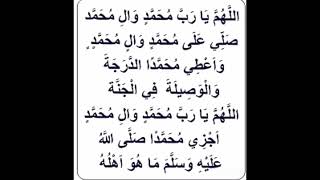 اللَّهُمَّ يَا رَبَّ مُحَمَّدٍ وَالِ مُحَمَّد
صَلِّي عَلَى مُحَمَّدٍ وَالِ مُحَمَّدٍ
وَاَعْطِي مُحَمَّدًا الدَّرَجَةَ
وَالْوَصِيلَةَ فِي الْجَنَّة
اللَّهُمَّ يَا رَبَّ مُحَمَّدٍ وَالِ مُحَمَّدٍ
اَجْزِي مُحَمَّدًا صَلَّى اللَّهُ
عَلَيْهِ وَسَلَّمَ مَا هُوَ اَهْلُهُ